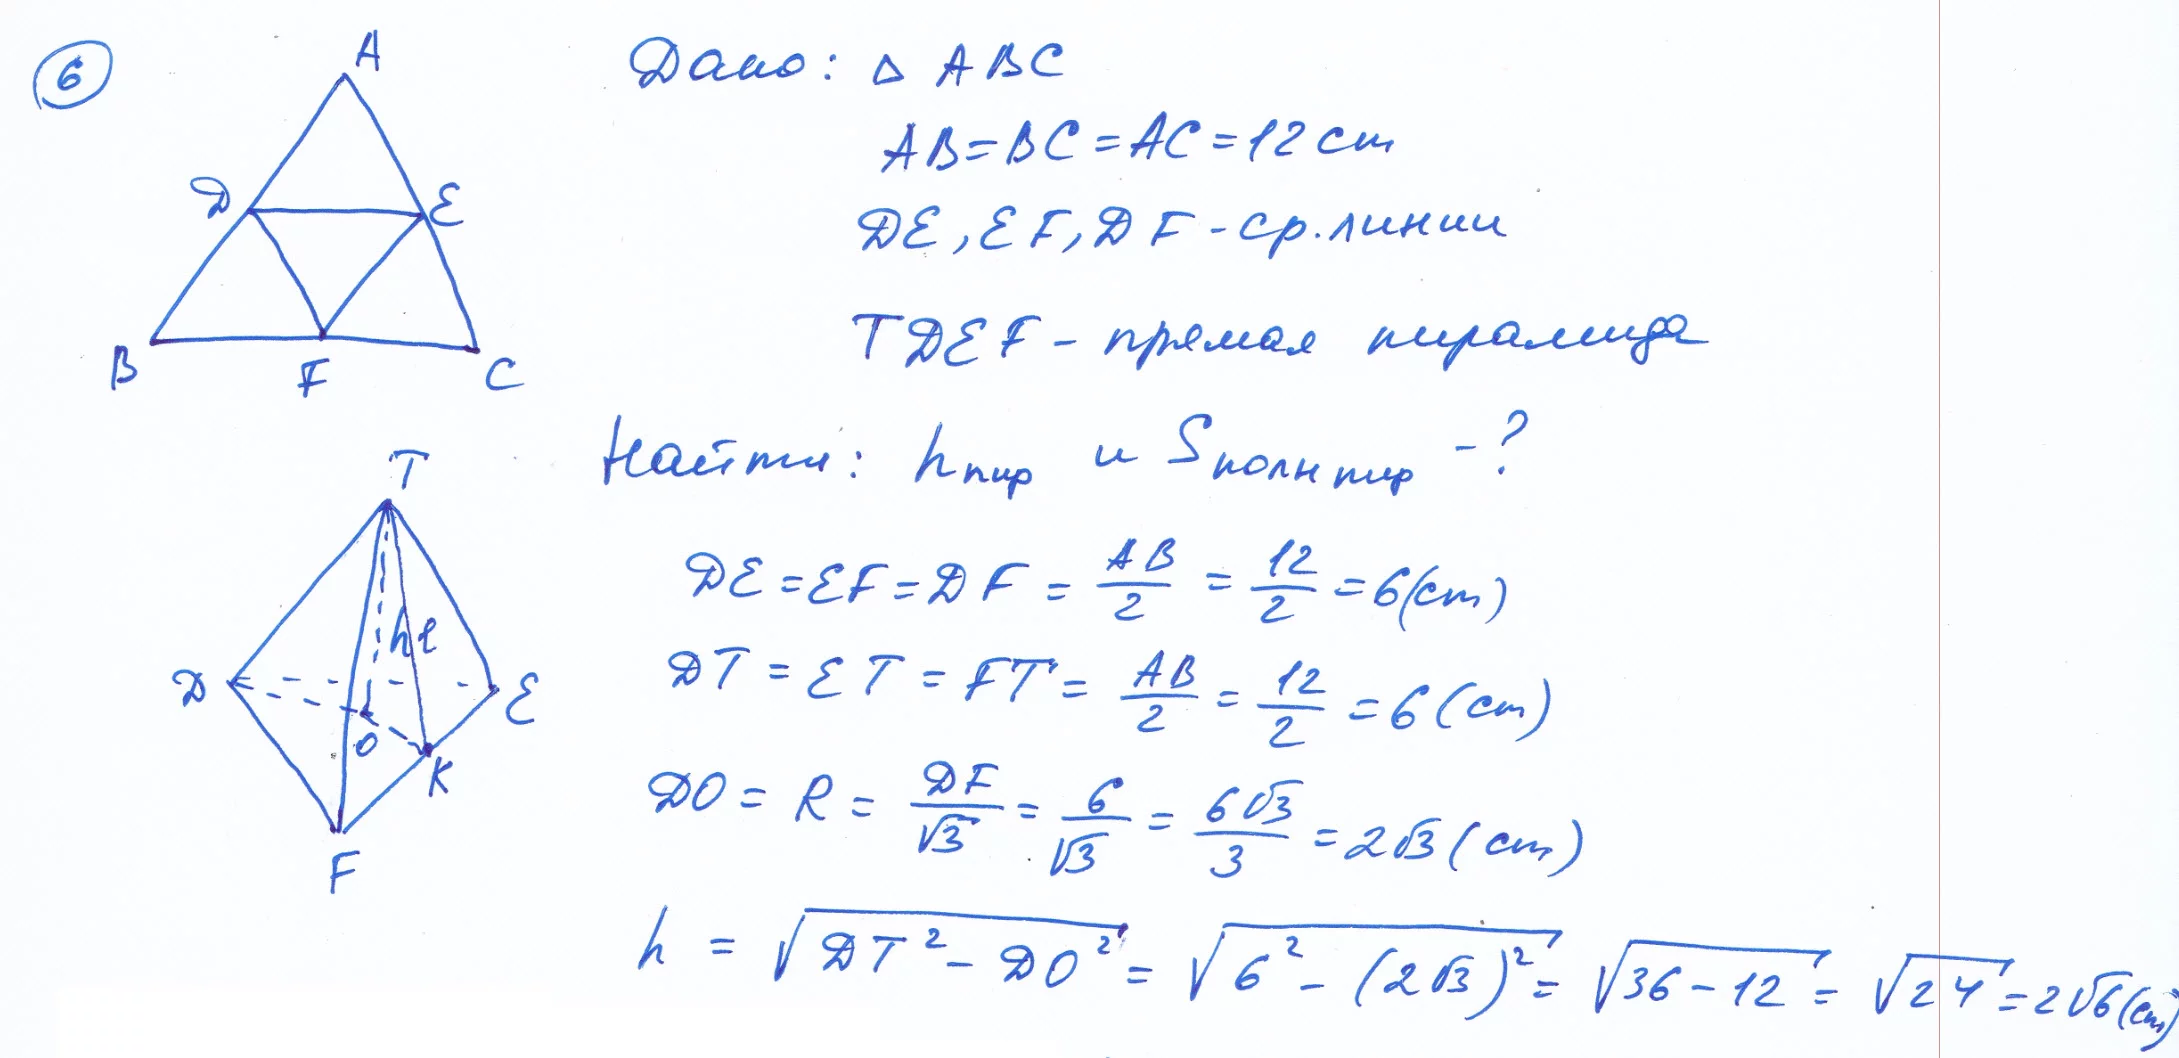 6
A
D
E
B
F
C
Дано: △ ABC
AB=BC=AC=12cm
DE, EF, DF - ср. линии
TDEF - прямая пирамида
Найти: hпир и Sполн пир - ?
T
h l
D
E
O
K
F
DE = EF = DF = AB/2 = 12/2 = 6(cm)
DT = ET = FT = AB/2 = 12/2 = 6 (cm)
DO = R = DF/√3 = 6/√3 = 6√3/3 = 2√3 (cm)
h = √(DT² - DO²) = √(6² - (2√3)²) = √(36 - 12) = √24 = 2√6 (cm)